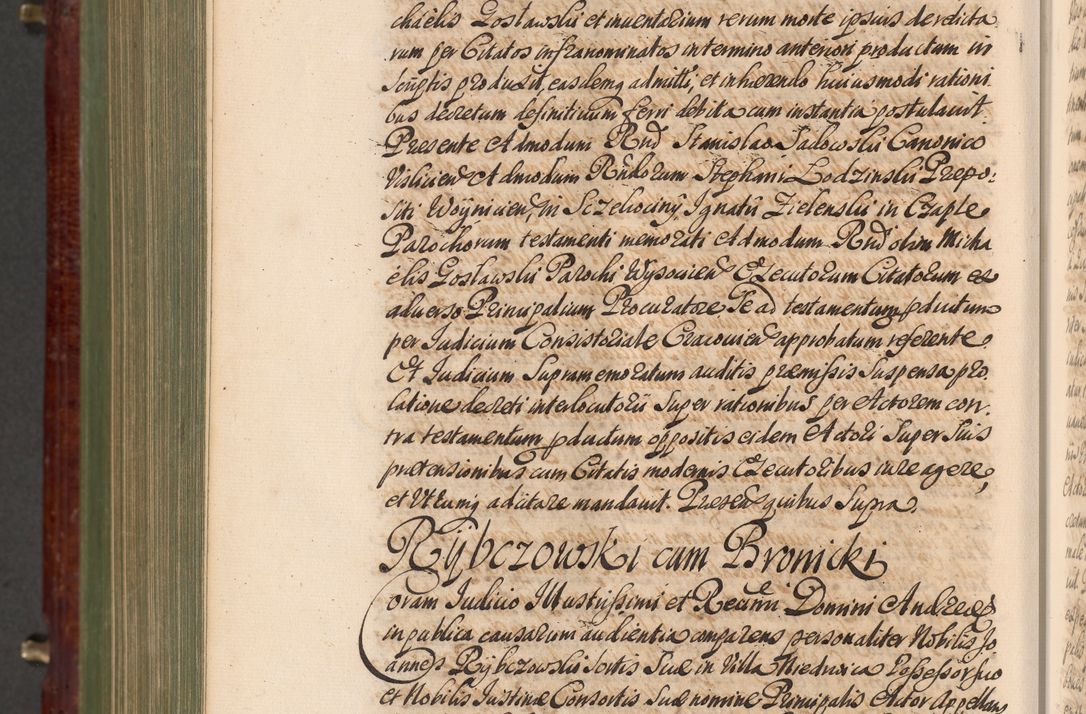 chaelis Gosławski et inventarium rerum morte ipsius derelicta
rum per Citatos infranominatos in termino anteriori productum in
scriptis produxit, easdemq admitti, et inhærendo huiusmodi rationi
bus decretum definitivum ferri debita cum instantia postulavit.
Præsente Admodum Rnd Stanislao Sadowski Canonico
Vislicien Admodum Rndorum Stephani Lodzinski Præpo:
siti Woynicien, in Sczekociny Ignatii Zielenski in Czaple
Parochorum testamenti memorati Admodum Rnd olim Micha
elis Gosławski Parochi Wysocien Executorum Citatorum ex
adverso Principalium Procuratore Se ad testamentum pductum
per Iudicium Consistoriale Cracovien approbatum referente
Et Iudicium Supramemoratum auditis præmissis Suspensa pro
latione decreti interlocutorii Super rationibus per Actorem con
tra testamentum pductum oppositis eidem Actori Super Suis
prætensionibus cum Citatis modernis Executoribus iure agere,
et Utrumq adcitare mandavit. Præsen quibus Supra.
Rybczowski cum Bronicki
Coram Iudicio Illustrissimi et Rendmi Domini Andreæ
in publica causarum audientia comparens personaliter Nobilis Jo
annes Rybczowski Sortis Suæ in Villa Mrednica Possessor Suo
et Nobilis Iustinæ Consortis Suæ nomine Principalis Actor Appellans